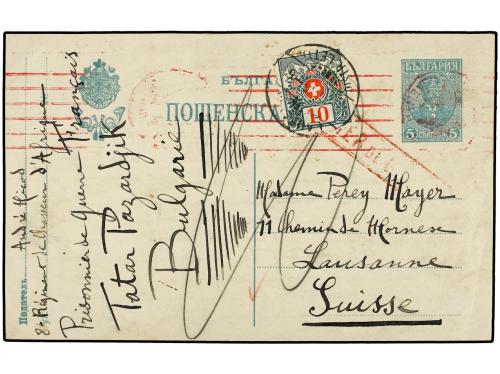 БЪЛГАРИЯ
ПОЩЕНСКА
5 5
10
Податель
André
8e Régiment de Chasseur d'Afrique
Prisonnier de Guerre Français
Tatar Pazardjik
Bulgarie
Madame Perey Mayer
11 Chemin de Mornex
Lausanne
Suisse